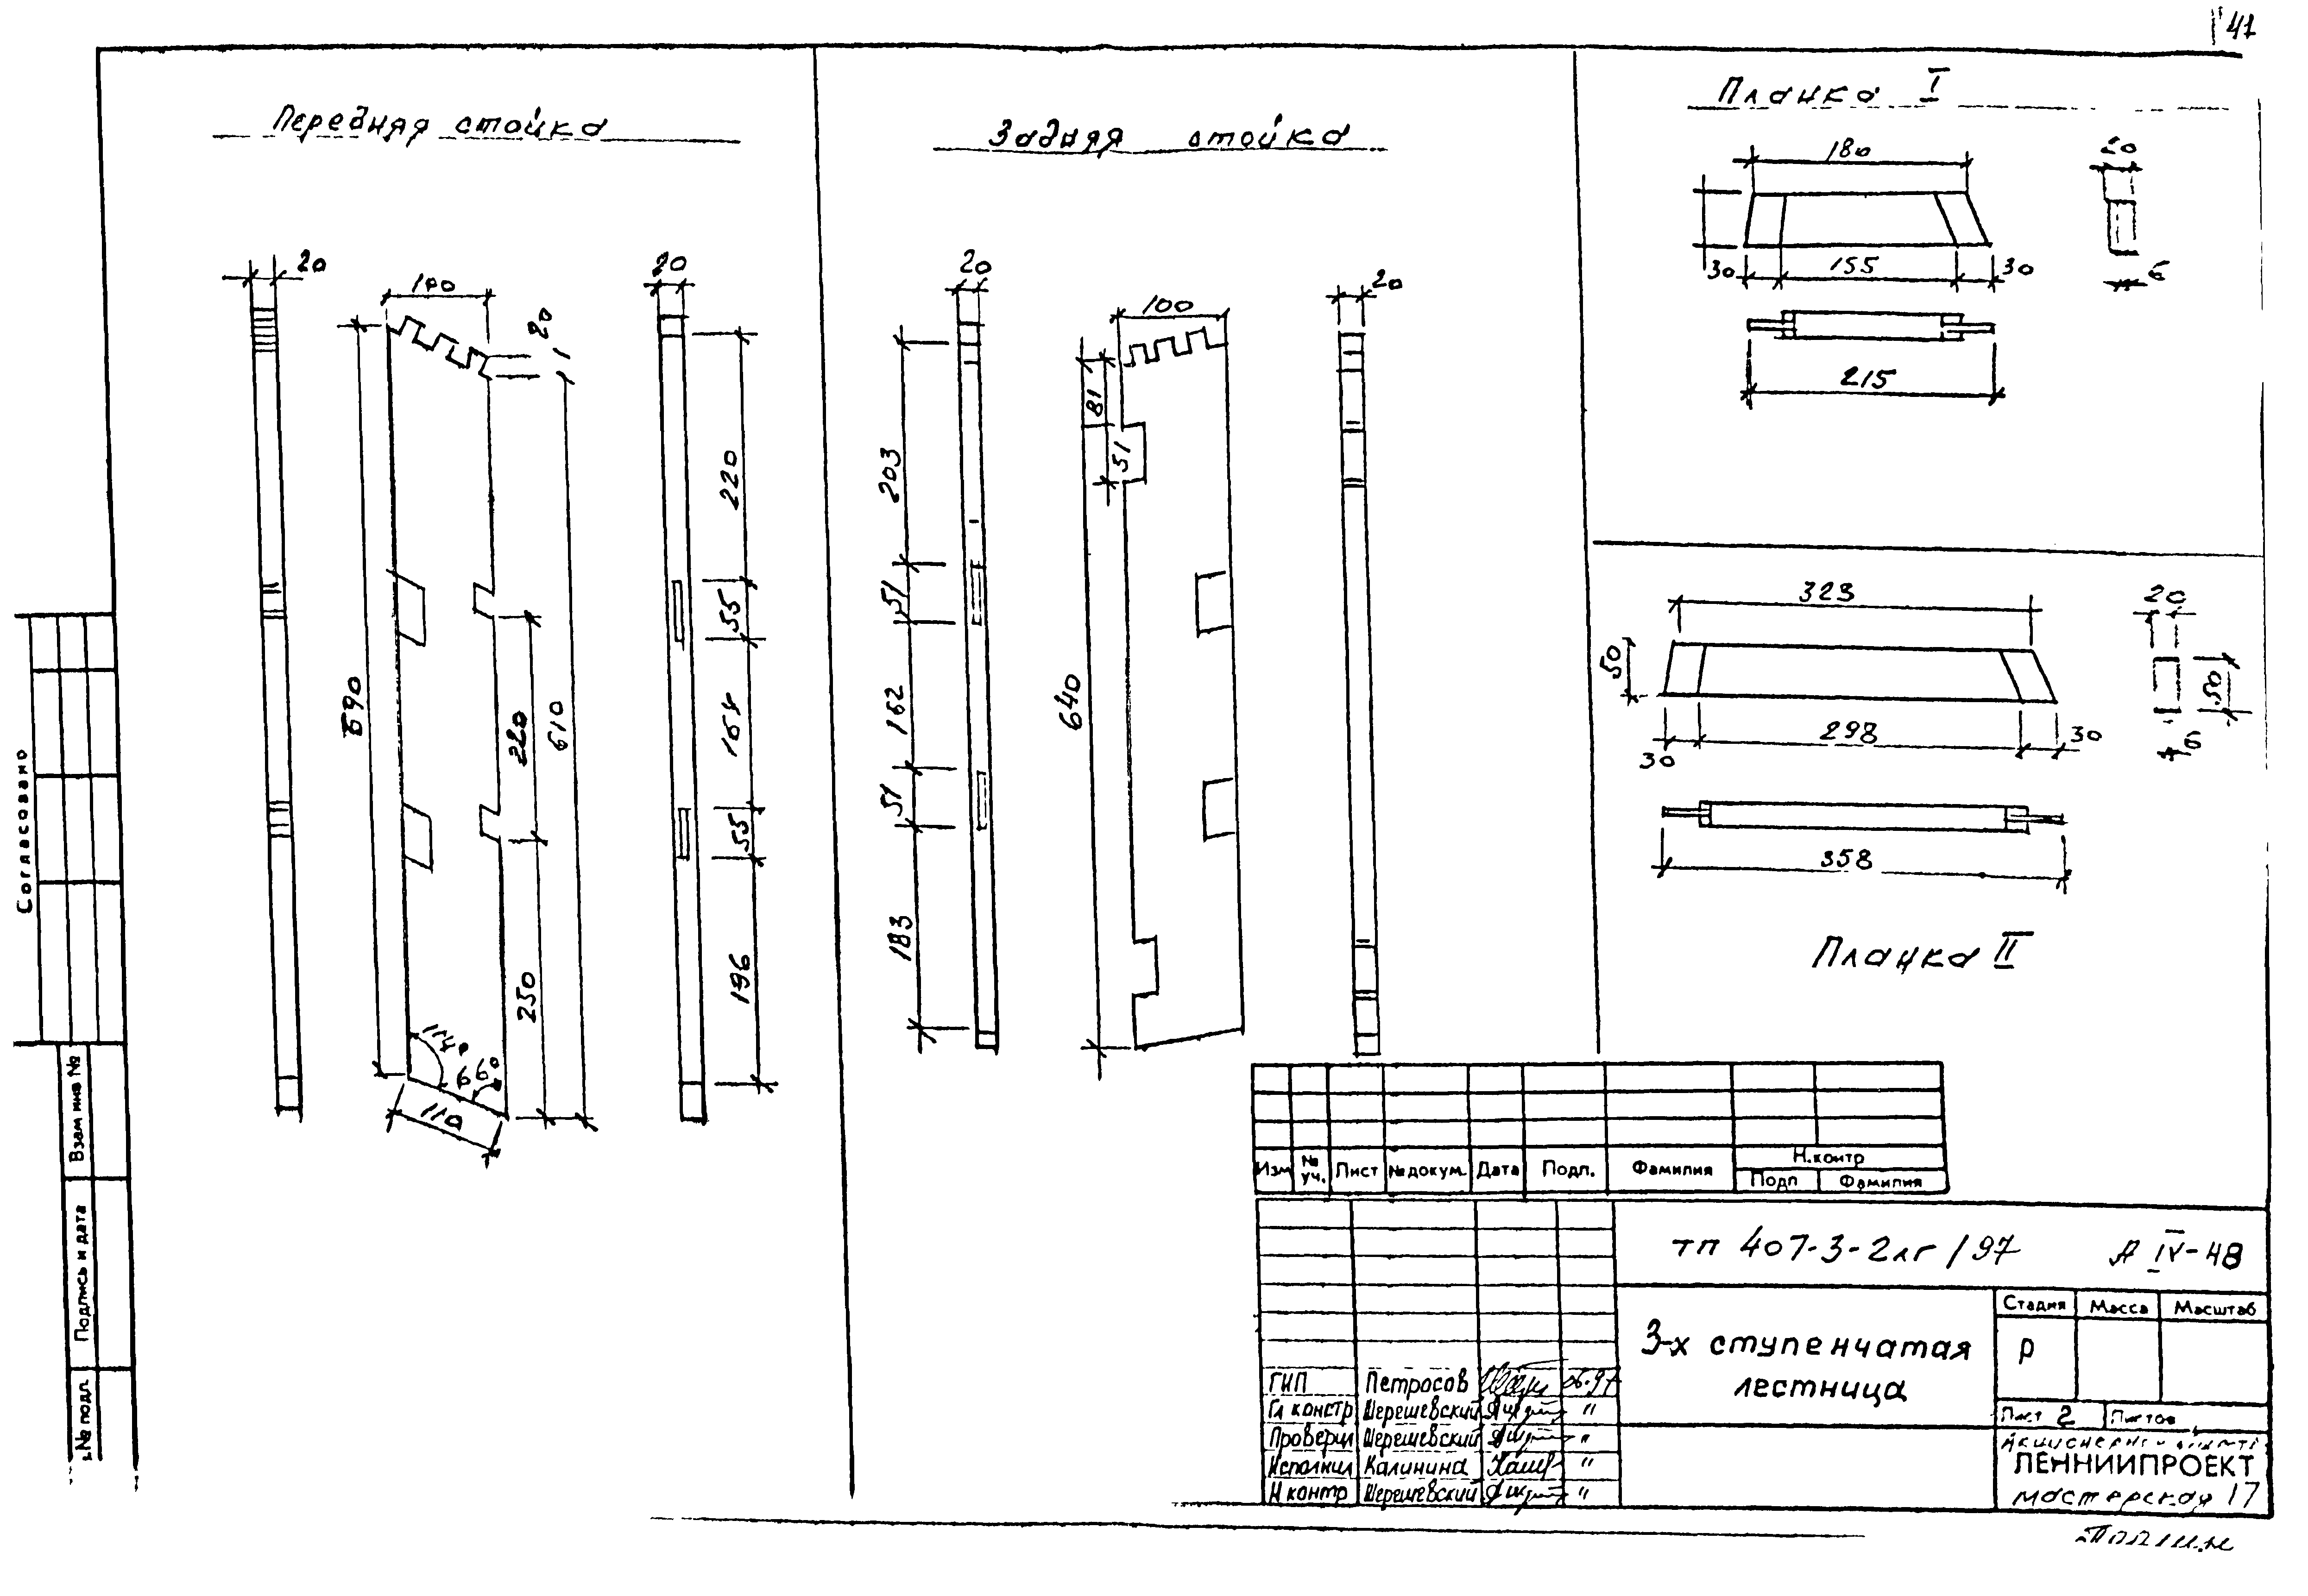 41
Передняя стойка
20
100
20
690
220
610
250
114°
66°
110
20
220
55
164
55
196
Задняя стойка
20
203
51
162
51
183
100
81
51
640
20
Планка I
180
20
30
155
30
6
215
323
50
20
50
298
30
30
6
358
Планка II
Согласовано
Взам инв №
Подпись и дата
№ подл
Изм № уч. Лист № докум. Дата Подп. Фамилия Н.контр
Подп Фамилия
ТП 407-3-2лг/97 А IV-48
3-х ступенчатая
лестница
Стадия Масса Масштаб
Р
Лист 2 Листов
ГИП Петросов 06.97
Гл констр Шерешевский "
Проверил Шерешевский "
Исполнил Калинина "
Н контр Шерешевский "
ЛЕННИИПРОЕКТ
мастерская 17